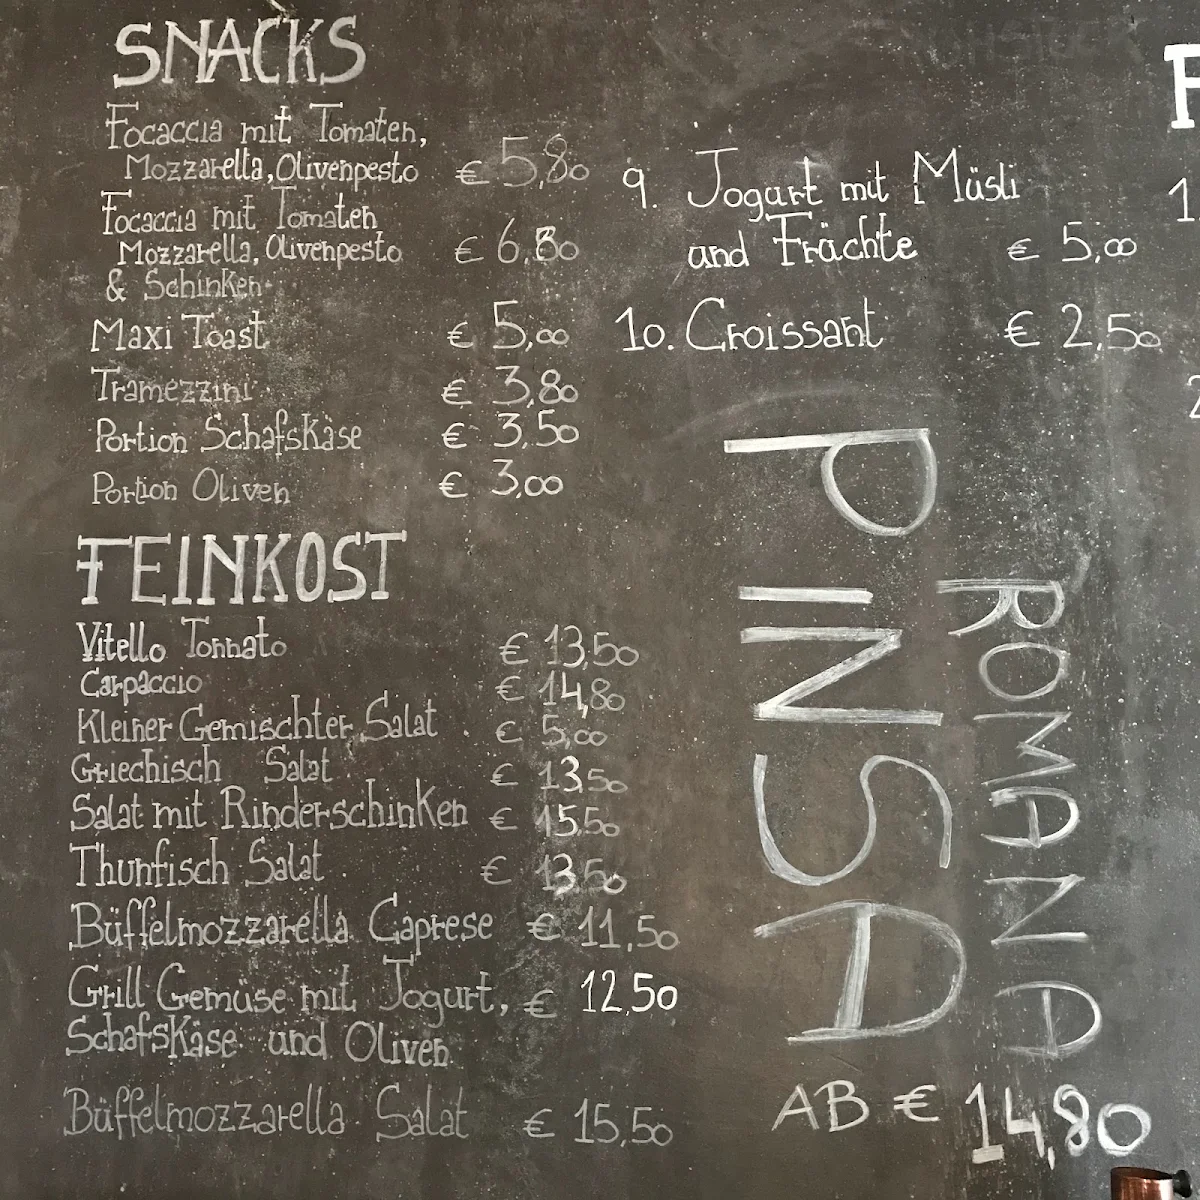 SNACKS
Focaccia mit Tomaten,
Mozzarella, Olivenpesto € 5,80
Focaccia mit Tomaten
Mozzarella, Olivenpesto € 6,80
& Schinken
Maxi Toast € 5,00
Tramezzini € 3,80
Portion Schafskäse € 3,50
Portion Oliven € 3,00
FEINKOST
Vitello Tonnato € 13,50
Carpaccio € 14,80
Kleiner Gemischter Salat € 5,00
Griechisch Salat € 13,50
Salat mit Rinderschinken € 15,50
Thunfisch Salat € 13,50
Büffelmozzarella Caprese € 11,50
Grill Gemüse mit Jogurt, € 12,50
Schafskäse und Oliven
Büffelmozzarella Salat € 15,50
9. Jogurt mit Müsli
und Früchte € 5,00
10. Croissant € 2,50
PINSA
ROMANA
AB € 14,80